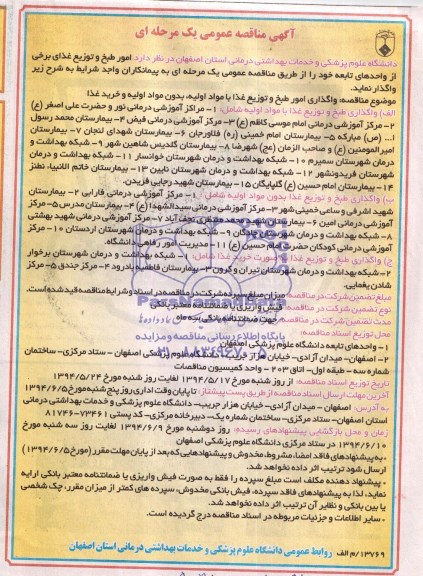 آگهی مناقصه عمومی یک مرحله ای
دانشگاه علوم پزشکی و خدمات بهداشتی درمانی استان اصفهان در نظر دارد امور طبخ و توزیع غذای برخی
از واحدهای تابعه خود را از طریق مناقصه عمومی یک مرحله ای به پیمانکاران واجد شرایط به شرح زیر
واگذار نماید.
موضوع مناقصه: واگذاری امور طبخ و توزیع غذا با مواد اولیه، بدون مواد اولیه و خرید غذا
الف) واگذاری طبخ و توزیع غذا با مواد اولیه شامل: ۱- مراکز آموزشی درمانی نور و حضرت علی اصغر (ع)
۲- مرکز آموزشی درمانی امام موسی کاظم (ع) ۳- مرکز آموزشی درمانی فیض ۴- بیمارستان محمد رسول
ا... (ص) مبارکه ۵- بیمارستان امام خمینی (ره) فلاورجان ۶- بیمارستان شهدای لنجان ۷- بیمارستان
امیرالمومنین (ع) و صاحب الزمان (عج) شهرضا ۸- بیمارستان گلدیس شاهین شهر ۹- شبکه بهداشت و
درمان شهرستان سمیرم ۱۰- شبکه بهداشت و درمان شهرستان خوانسار ۱۱- شبکه بهداشت و درمان
شهرستان فریدونشهر ۱۲- شبکه بهداشت و درمان شهرستان نایین ۱۳- بیمارستان خاتم الانبیاء نطنز
۱۴- بیمارستان امام حسین (ع) گلپایگان ۱۵- بیمارستان شهید رجایی فریدن.
ب) واگذاری طبخ و توزیع غذا بدون مواد اولیه شامل: ۱- مرکز آموزشی درمانی فارابی ۲- بیمارستان
شهید اشرفی و ساعی خمینی شهر ۳- مرکز آموزشی درمانی سیدالشهدا (ع) ۴- بیمارستان مدرس ۵- مرکز
آموزشی درمانی امین ۶- بیمارستان شهید محمد منتظری نجف آباد ۷- مرکز آموزشی درمانی شهید بهشتی
۸- شبکه بهداشت و درمان شهرستان چادگان ۹- شبکه بهداشت و درمان شهرستان اردستان ۱۰- مرکز
آموزشی درمانی کودکان حضرت امام حسین (ع) ۱۱- مدیریت امور رفاهی دانشگاه.
ج) واگذاری طبخ و توزیع غذا به صورت خرید غذا شامل: ۱- شبکه بهداشت و درمان شهرستان برخوار
۲- شبکه بهداشت و درمان شهرستان تیران و کرون ۳- بیمارستان فاطمیه بادرود ۴- مرکز جندق ۵- مرکز
شادن یغمایی.
مبلغ تضمین شرکت در مناقصه: میزان مبلغ سپرده شرکت در مناقصه در اسناد و شرایط مناقصه قید شده است.
نوع تضمین شرکت در مناقصه: فیش واریزی یا ضمانتنامه معتبر بانکی
مدت تضمین شرکت در مناقصه: جهت ضمانتنامه بانکی سه ماه
محل توزیع اسناد مناقصه:
۱- واحدهای تابعه دانشگاه علوم پزشکی اصفهان
۲- اصفهان- میدان آزادی- خیابان هزار جریب- دانشگاه علوم پزشکی اصفهان - ستاد مرکزی- ساختمان
شماره سه- طبقه اول- اتاق ۲۰۳ - واحد کمیسیون مناقصات
تاریخ توزیع اسناد مناقصه: از روز شنبه مورخ ۱۳۹۴/۵/۱۷ لغایت روز شنبه مورخ ۱۳۹۴/۵/۲۴
آخرین مهلت ارسال اسناد مناقصه از طریق پست پیشتاز: تا پایان وقت اداری روز پنج شنبه مورخ ۱۳۹۴/۶/۵
به آدرس: اصفهان - میدان آزادی- خیابان هزار جریب- دانشگاه علوم پزشکی و خدمات بهداشتی درمانی
استان اصفهان- ستاد مرکزی- ساختمان شماره یک- دبیرخانه مرکزی- کد پستی ۷۳۴۶۱-۸۱۷۴۶
زمان و محل بازگشایی پیشنهادهای رسیده: روز دوشنبه مورخ ۱۳۹۴/۶/۹ لغایت روز سه شنبه مورخ
۱۳۹۴/۶/۱۰ در ستاد مرکزی دانشگاه علوم پزشکی اصفهان
- به پیشنهادهای فاقد امضا، مشروط، مخدوش و پیشنهادهایی که بعد از پایان مهلت مقرر (مورخ ۱۳۹۴/۶/۵)
ارسال شود ترتیب اثر داده نخواهد شد.
- پیشنهاد دهنده مکلف است مبلغ سپرده را فقط به صورت فیش واریزی یا ضمانتنامه معتبر بانکی ارایه
نماید، لذا به پیشنهادهای فاقد سپرده، فیش بانکی مخدوش، سپرده های کمتر از میزان مقرر، چک شخصی
یا بین بانکی و نظایر آن ترتیب اثر داده نخواهد شد.
- سایر اطلاعات و جزئیات مربوطه در اسناد مناقصه درج گردیده است.
۱۳۷۶۹/م الف روابط عمومی دانشگاه علوم پزشکی و خدمات بهداشتی درمانی استان اصفهان